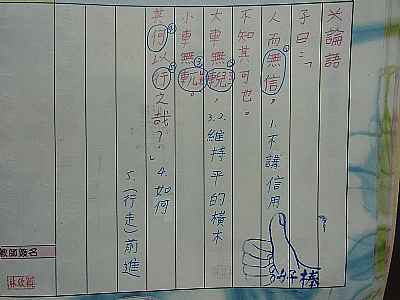 ※論語
子曰:「
人而①無信,1.不講信用
不知其可也。
大車無②輗,3.2.維持平的橫木
小車無③軏。
其④何以⑤行之哉?」4.如何
5.(行走)前進
你好棒
教師簽名